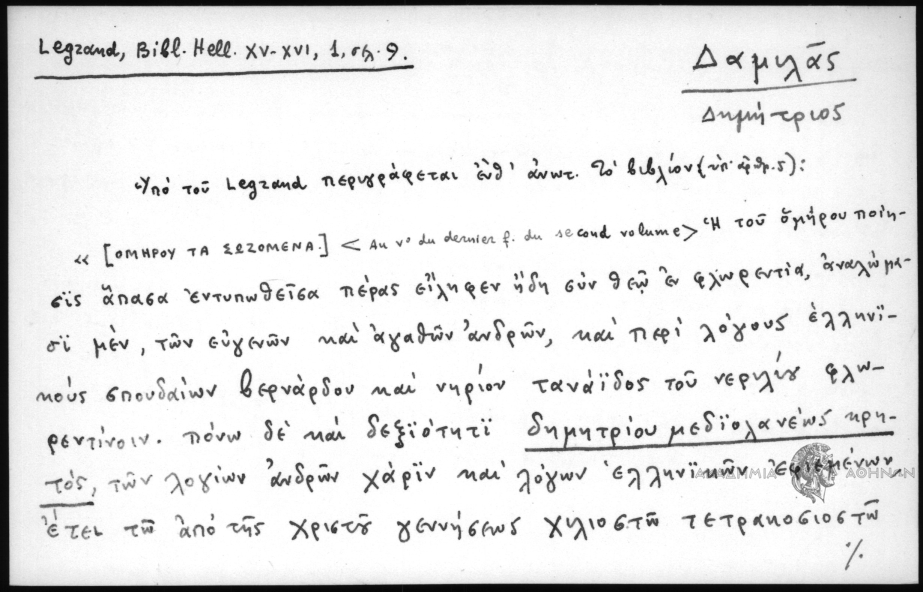 Legrand, Bibl. Hell. XV-XVI, 1, σελ. 9.
Δαμιλᾶς
Δημήτριος
Ὑπό τοῦ Legrand περιγράφεται ἐνθ' ἀνωτ. τό βιβλίον (ὑπ' ἀριθμ. 5):
« [ΟΜΗΡΟΥ ΤΑ ΣΩΖΟΜΕΝΑ.] < Au v° du dernier f. du second volume> Ἡ τοῦ ὁμήρου ποίη-
σϊς ἅπασα ἐντυπωθεῖσα πέρας εἴληφεν ἤδη σὺν θεῷ ἐν φλωρεντία, ἀναλώμα-
σϊ μὲν, τῶν εὐγενῶν καὶ ἀγαθῶν ἀνδρῶν, καὶ περὶ λόγους ἑλληνϊ-
κοὺς σπουδαίων βερνάρδου καὶ νηρίου τανάϊδος τοῦ νεριλίου φλω-
ρεντίνοιν. πόνω δὲ καὶ δεξϊότητϊ δημητρίου μεδϊολανέως κρη-
τὸς, τῶν λογίων ἀνδρῶν χάρϊν καὶ λόγων ἑλληνϊκῶν ἐφιεμένων.
ἔτει τῶ ἀπὸ τῆς χριστοῦ γεννήσεως χιλιοστῶ τετρακοσιοστῶ
·/.
ΑΚΑΔΗΜΙΑ ΑΘΗΝΩΝ